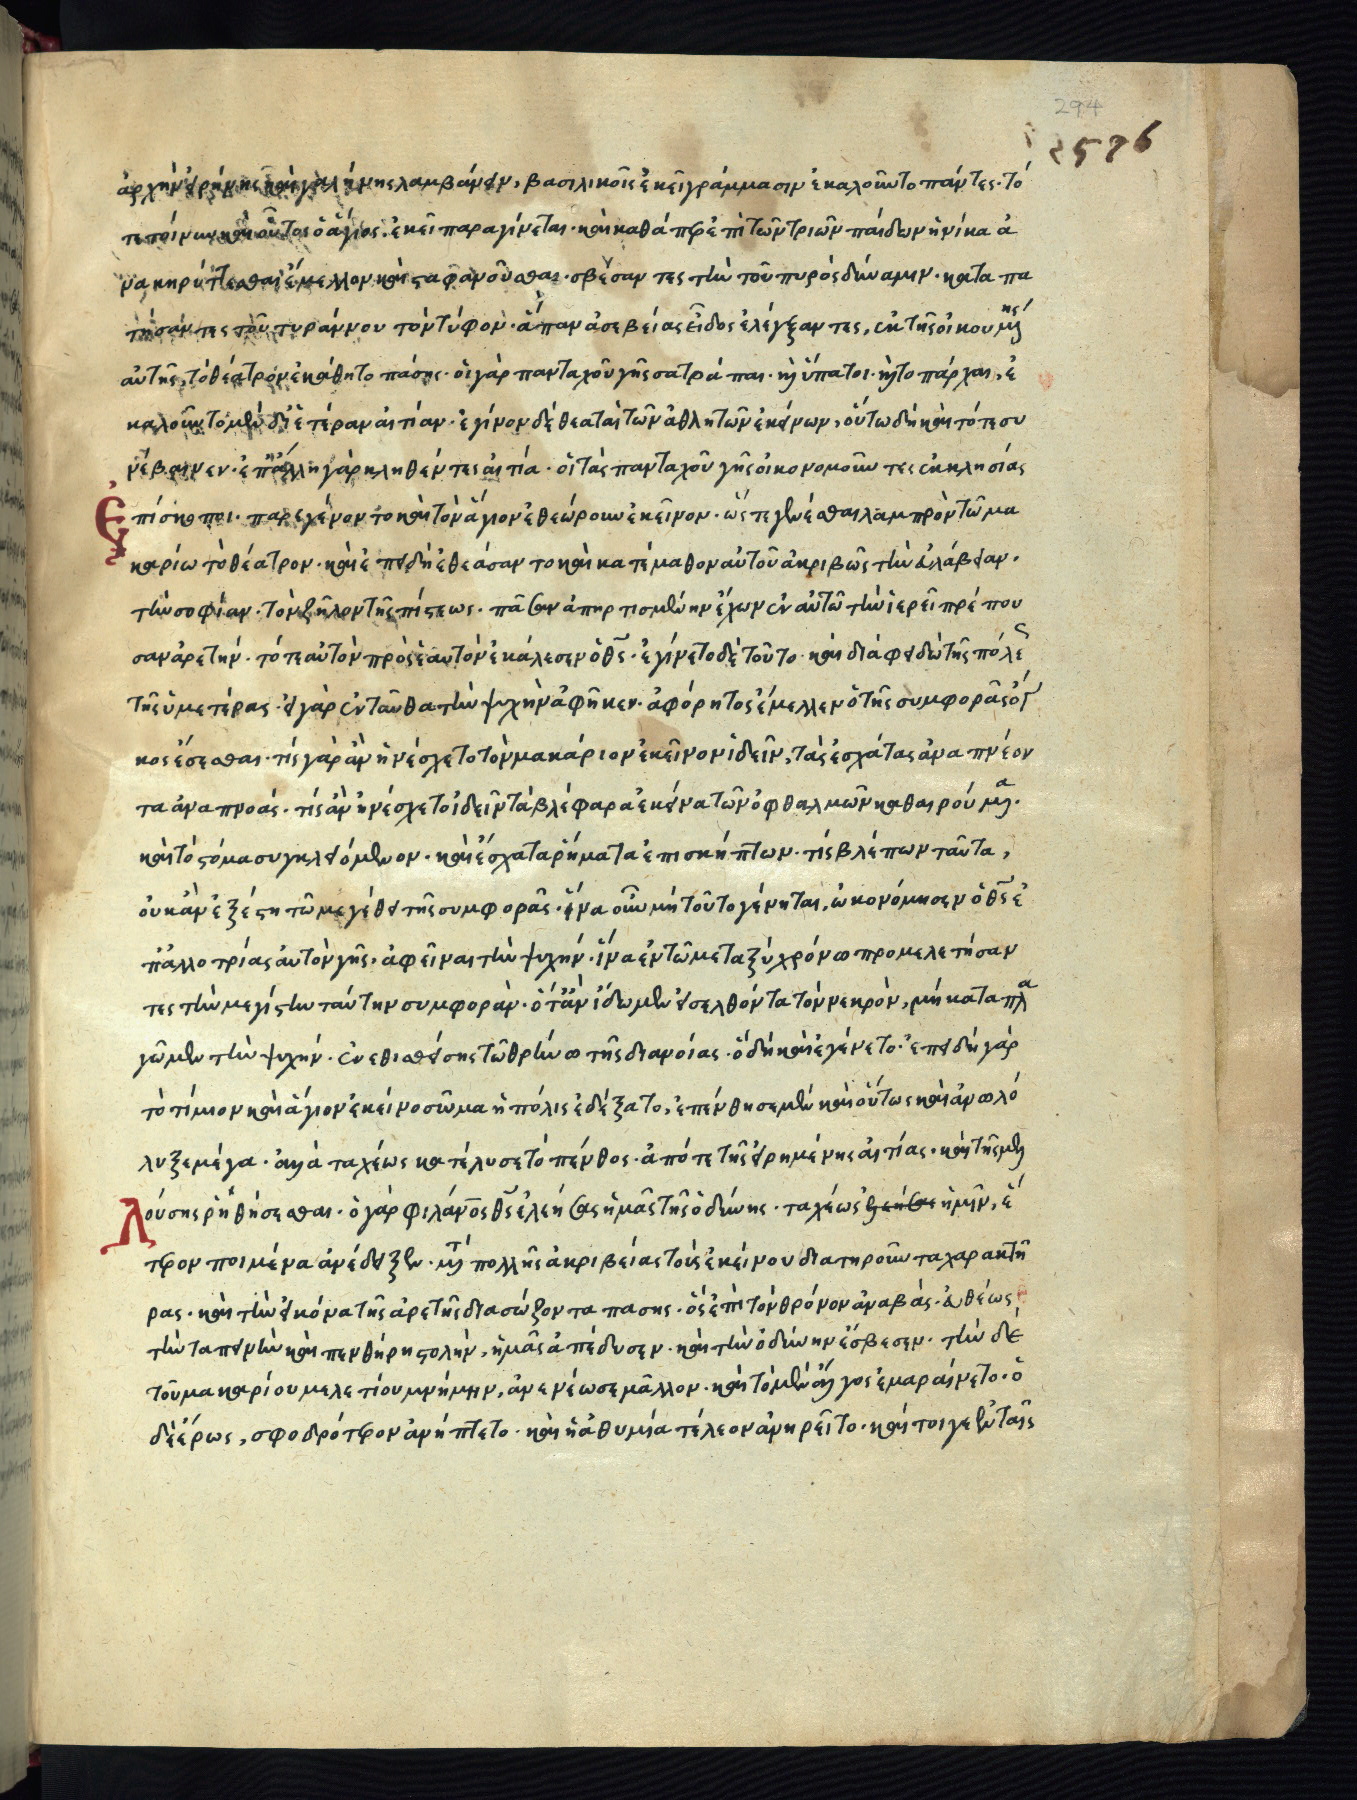 294
2576
ἀρχὴν εἰρήνης καὶ γαλήνης λαμβάνειν, βασιλικοῖς ἐκεῖ γράμμασιν ἐκαλοῦντο πάντες. τό
τε τοίνυν καὶ οὗτος ὁ ἅγιος. ἐκεῖ παραγίνεται. καὶ καθάπερ ἐπὶ τῶν τριῶν παίδων ἡνίκα ἀ
νακηρύττεσθαι ἔμελλον καὶ στεφανοῦσθαι. σβέσαντες τὴν τοῦ πυρὸς δύναμιν. καταπα
τήσαντες τοῦ τυράννου τὸν τύφον. ἅπαν ἀσεβείας εἶδος ἐλέγξαντες, ἐκ τῆς οἰκουμένης
αὐτῆς, τὸ θέατρον ἐκάθητο πάσης. οἱ γὰρ πανταχοῦ γῆς σατράπαι. καὶ ὕπατοι. καὶ τοπάρχαι, ἐ
καλοῦντο μὲν δι' ἑτέραν αἰτίαν. ἐγίνοντο δὲ θεαταὶ τῶν ἀθλητῶν ἐκείνων, οὕτω δὴ καὶ τότε συ
νέβαινεν. ἐπ' ἄλλῃ γὰρ κληθέντες αἰτία. οἱ τὰς πανταχοῦ γῆς οἰκονομοῦντες ἐκκλησίας
ἐπίσκοποι. παρεγένοντο καὶ τὸν ἅγιον ἐθεώρουν ἐκεῖνον. ὥστε γενέσθαι λαμπρὸν τῶ μα
καρίω τὸ θέατρον. καὶ ἐπειδὴ ἐθεάσαντο καὶ κατέμαθον αὐτοῦ ἀκριβῶς τὴν εὐλάβειαν.
τὴν σοφίαν. τὸν ζῆλον τῆς πίστεως. πᾶσαν ἀπηρτισμένην ἔχων ἐν αὐτῶ τὴν ἱερεῖ πρέπου
σαν ἀρετήν. τότε αὐτὸν πρὸς ἑαυτὸν ἐκάλεσεν ὁ θς. ἐγίνετο δὲ τοῦτο. καὶ διὰ φειδὼ τῆς πόλεως
τῆς ὑμετέρας. εἰ γὰρ ἐνταῦθα τὴν ψυχὴν ἀφῆκεν. ἀφόρητος ἔμελλεν ὁ τῆς συμφορᾶς ὄγ
κος ἔσεσθαι. τίς γὰρ ἂν ἠνέσχετο τὸν μακάριον ἐκεῖνον ἰδεῖν, τὰς ἐσχάτας ἀναπνέον
τα ἀναπνοάς. τίς ἂν ἠνέσχετο ἰδεῖν τὰ βλέφαρα ἐκεῖνα τῶν ὀφθαλμῶν καθαιρούμενα.
καὶ τὸ στόμα συγκλειόμενον. καὶ ἔσχατα ῥήματα ἐπισκήπτων. τίς βλέπων ταῦτα,
οὐκ ἂν ἐξέστη τῶ μεγέθει τῆς συμφορᾶς. ἵνα οὖν μὴ τοῦτο γένηται, ὠκονόμησεν ὁ θς ἐ
π' ἀλλοτρίας αὐτὸν γῆς. ἀφεῖναι τὴν ψυχήν. ἵνα ἐν τῶ μεταξὺ χρόνω προμελετήσαν
τες τὴν μεγίστην ταύτην συμφορὰν. ὅτ' ἂν ἴδωμεν εἰσελθόντα τὸν νεκρὸν, μὴ καταπλα
γῶμεν τὴν ψυχήν. ἐνεθισθείσης τῶ θρήνω τῆς διανοίας. ὃ δὴ καὶ ἐγένετο. ἐπειδὴ γὰρ
τὸ τίμιον καὶ ἅγιον ἐκεῖνο σῶμα ἡ πόλις ἐδέξατο, ἐπένθησε μὲν καὶ οὕτως καὶ ἀνωλό
λυξε μέγα. ἀλλὰ ταχέως κατέλυσε τὸ πένθος. ἀπό τε τῆς εἰρημένης αἰτίας. καὶ τῆς μελ
λούσης ῥηθήσεσθαι. ὁ γὰρ φιλάνος θς ἐλεήσας ἡμᾶς τῆς ὀδύνης. ταχέως ἡμῖν, ἕ
τερον ποιμένα ἀνέδειξεν. μετὰ πολλῆς ἀκριβείας τοὺς ἐκείνου διατηροῦντα χαρακτῆ
ρας. καὶ τὴν εἰκόνα τῆς ἀρετῆς διασώζοντα πασης. ὃς ἐπὶ τὸν θρόνον ἀναβὰς. εὐθέως,
τὴν ταπεινὴν καὶ πενθήρη στολὴν, ἡμᾶς ἀπέδυσεν. καὶ τὴν ὀδύνην ἔσβεσεν. τὴν δὲ
τοῦ μακαρίου μελετίου μνήμην, ἀνενέωσε μᾶλλον. καὶ τὸ μὲν ἄλγος ἐμαραίνετο. ὁ
δὲ ἔρως, σφοδρότερον ἀνήπτετο. καὶ ἡ ἀθυμία τέλεον ἀνηρεῖτο. καί τοι γε ἐν ταῖς